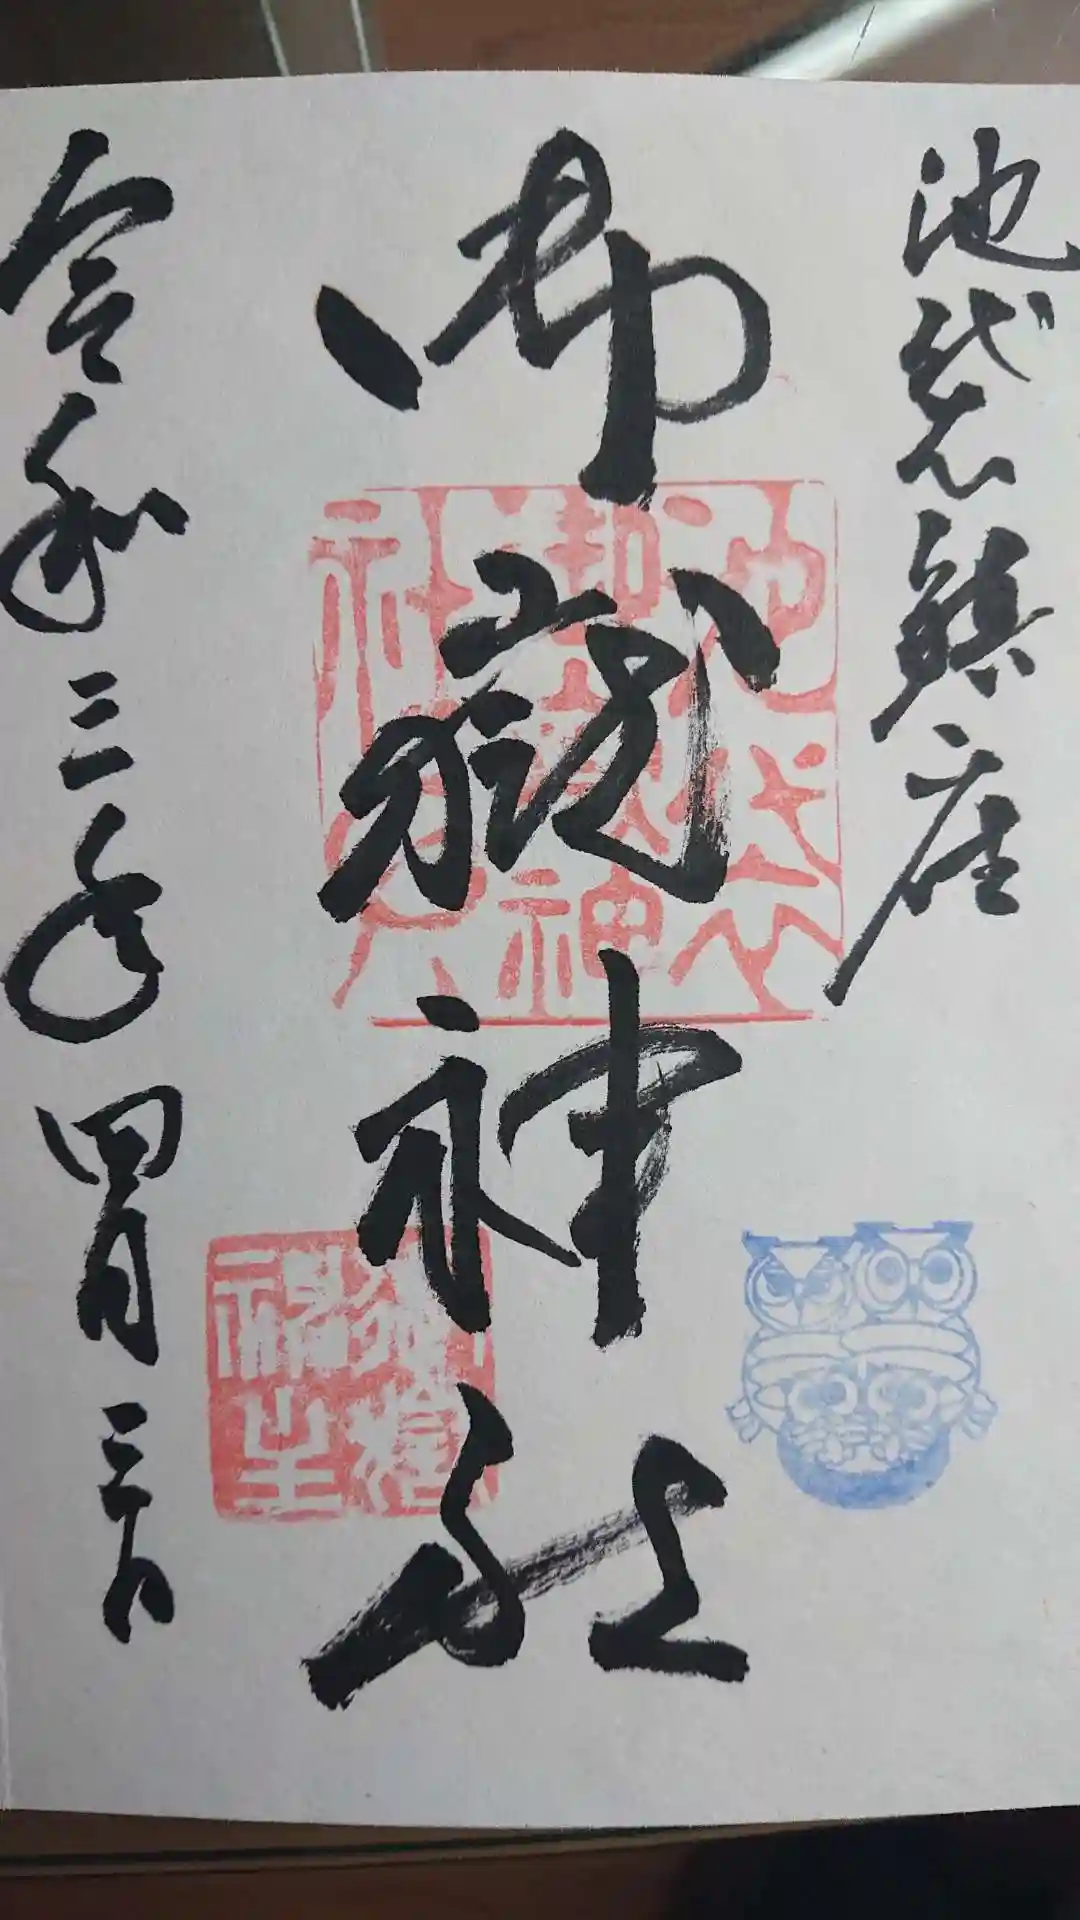 池袋鎮座
御嶽神社
令和三年四月三日
池袋
御嶽神
社